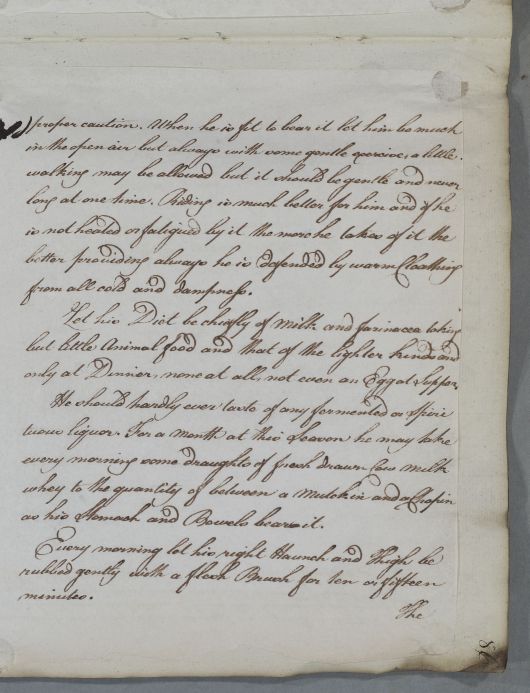 proper caution. When he is fit to bear it let him be much
in the open air but always with some gentle exercise, a little
walking may be allowed but it should be gentle and never
long at one time. Riding is much better for him and if he
is not heated or fatigued by it the more he takes of it the
better providing always he is defended by warm Cloathing
from all cold and dampness.
Let his Diet be chiefly of Milk and farinacea taking
but little Animal food and that of the lighter kinds and
only at Dinner, none at all, not even an Egg at Supper.
He should hardly ever taste of any fermented or Spiri
tuous liquor. For a Month at this Season he may take
every morning some draughts of fresh drawn Cow Milk
whey to the quantity of between a Mutchkin and a Chopin
as his Stomach and Bowels bears it.
Every morning let his right Haunch and Thigh be
rubbed gently with a flesh Brush for ten or fifteen
minutes.
The